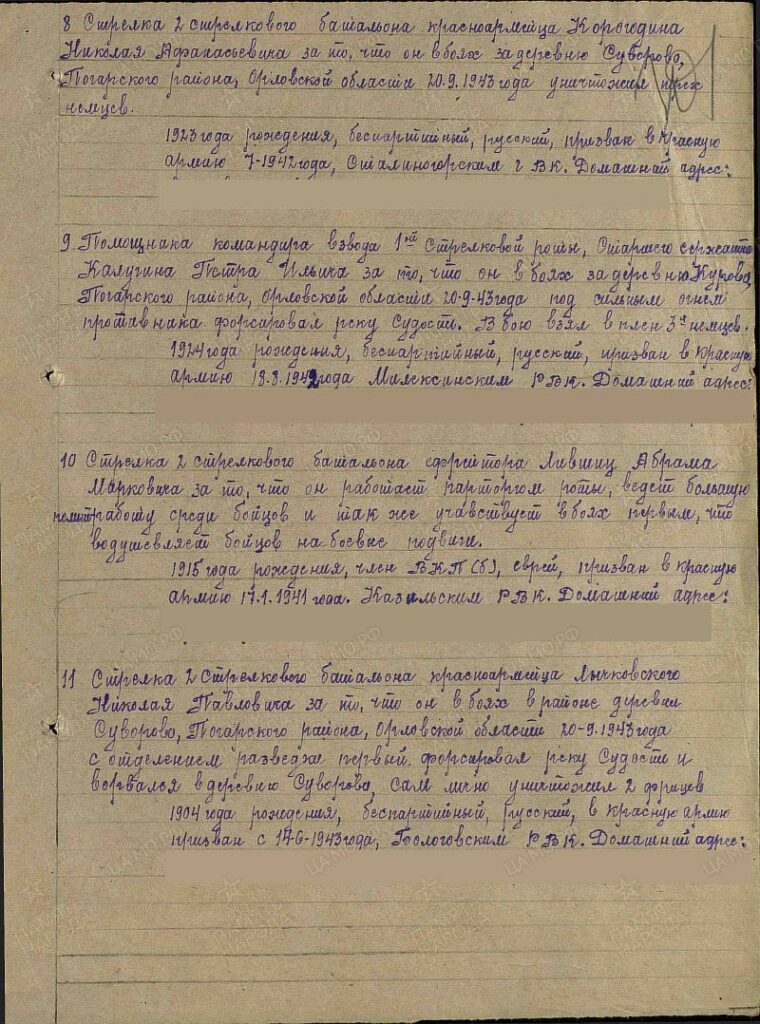 8 Стрелка 2 стрелкового батальона красноармейца Корогодина
Николая Афанасьевича за то, что он в боях за деревню Суворово,
Погарского района, Орловской области 20.9.1943 года уничтожил трех
немцев.
1923 года рождения, беспартийный, русский, призван в Красную
армию 7-1942 года, Сталиногорским г ВК. Домашний адрес:
9. Помощника командира взвода 1ой Стрелковой роты, Старшего сержанта
Калугина Петра Ильича за то, что он в боях за деревню Курово,
Погарского района, Орловской области 20-9-43 года под сильным огнем
противника форсировал реку Судость. В бою взял в плен 3х немцев.
1924 года рождения, беспартийный, русский, призван в Красную
армию 18.8.1942 года Мелекесинским РВК. Домашний адрес:
10 Стрелка 2 стрелкового батальона ефрейтора Лившиц Абрама
Марковича за то, что он работает парторгом роты, ведет большую
полит работу среди бойцов и так же учавствует в боях первым, что
водушевляет бойцов на боевые подвиги.
1915 года рождения, член ВКП(б), еврей, призван в Красную
армию 17.1.1941 года. Казильским РВК. Домашний адрес:
11 Стрелка 2 Стрелкового батальона красноармейца Лычковского
Николая Павловича за то, что он в боях в районе деревни
Суворово, Погарского района, Орловской области 20-9.1943 года
с отделением разведки первый форсировал реку Судость и
ворвался в деревню Суворово, сам лично уничтожил 2 фрицев
1904 года рождения, беспартийный, русский, в Красную армию
призван с 14-6-1943 года, Бологовским РВК. Домашний адрес: